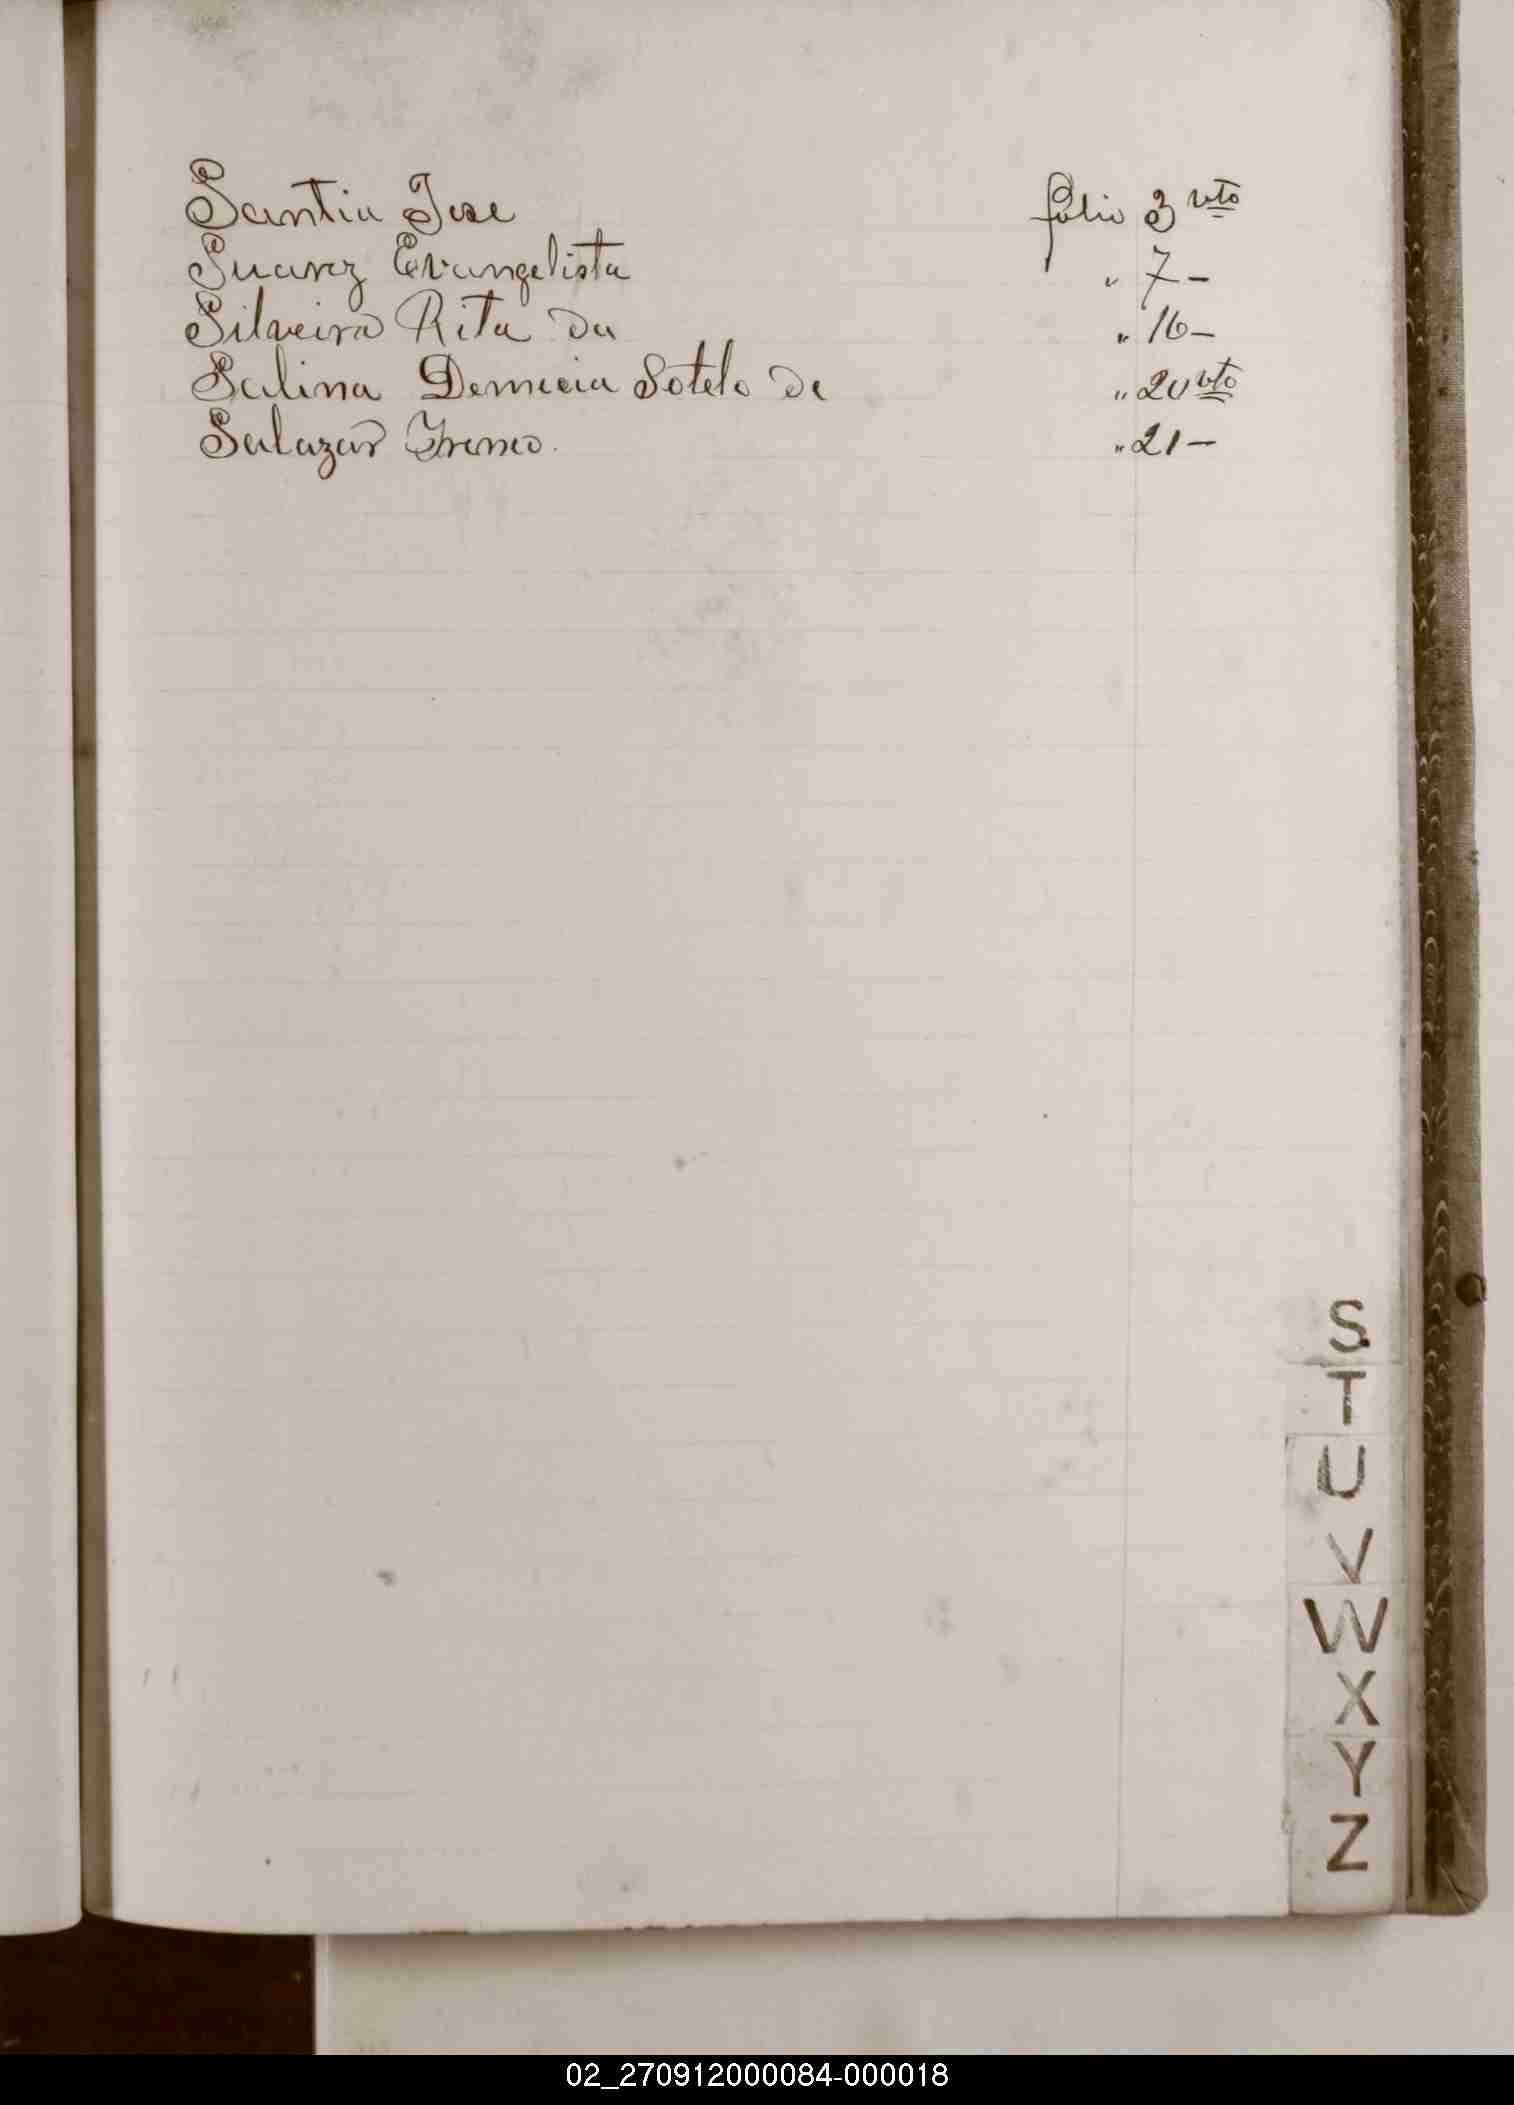 Santia Jose folio 3 vto
Suarez Evangelista " 7 -
Silveira Rita da " 16 -
Salina Demicia Sotelo de " 20 vto
Salazar Ireneo. " 21 -
S
T
U
V
W
X
Y
Z
02_270912000084-000018